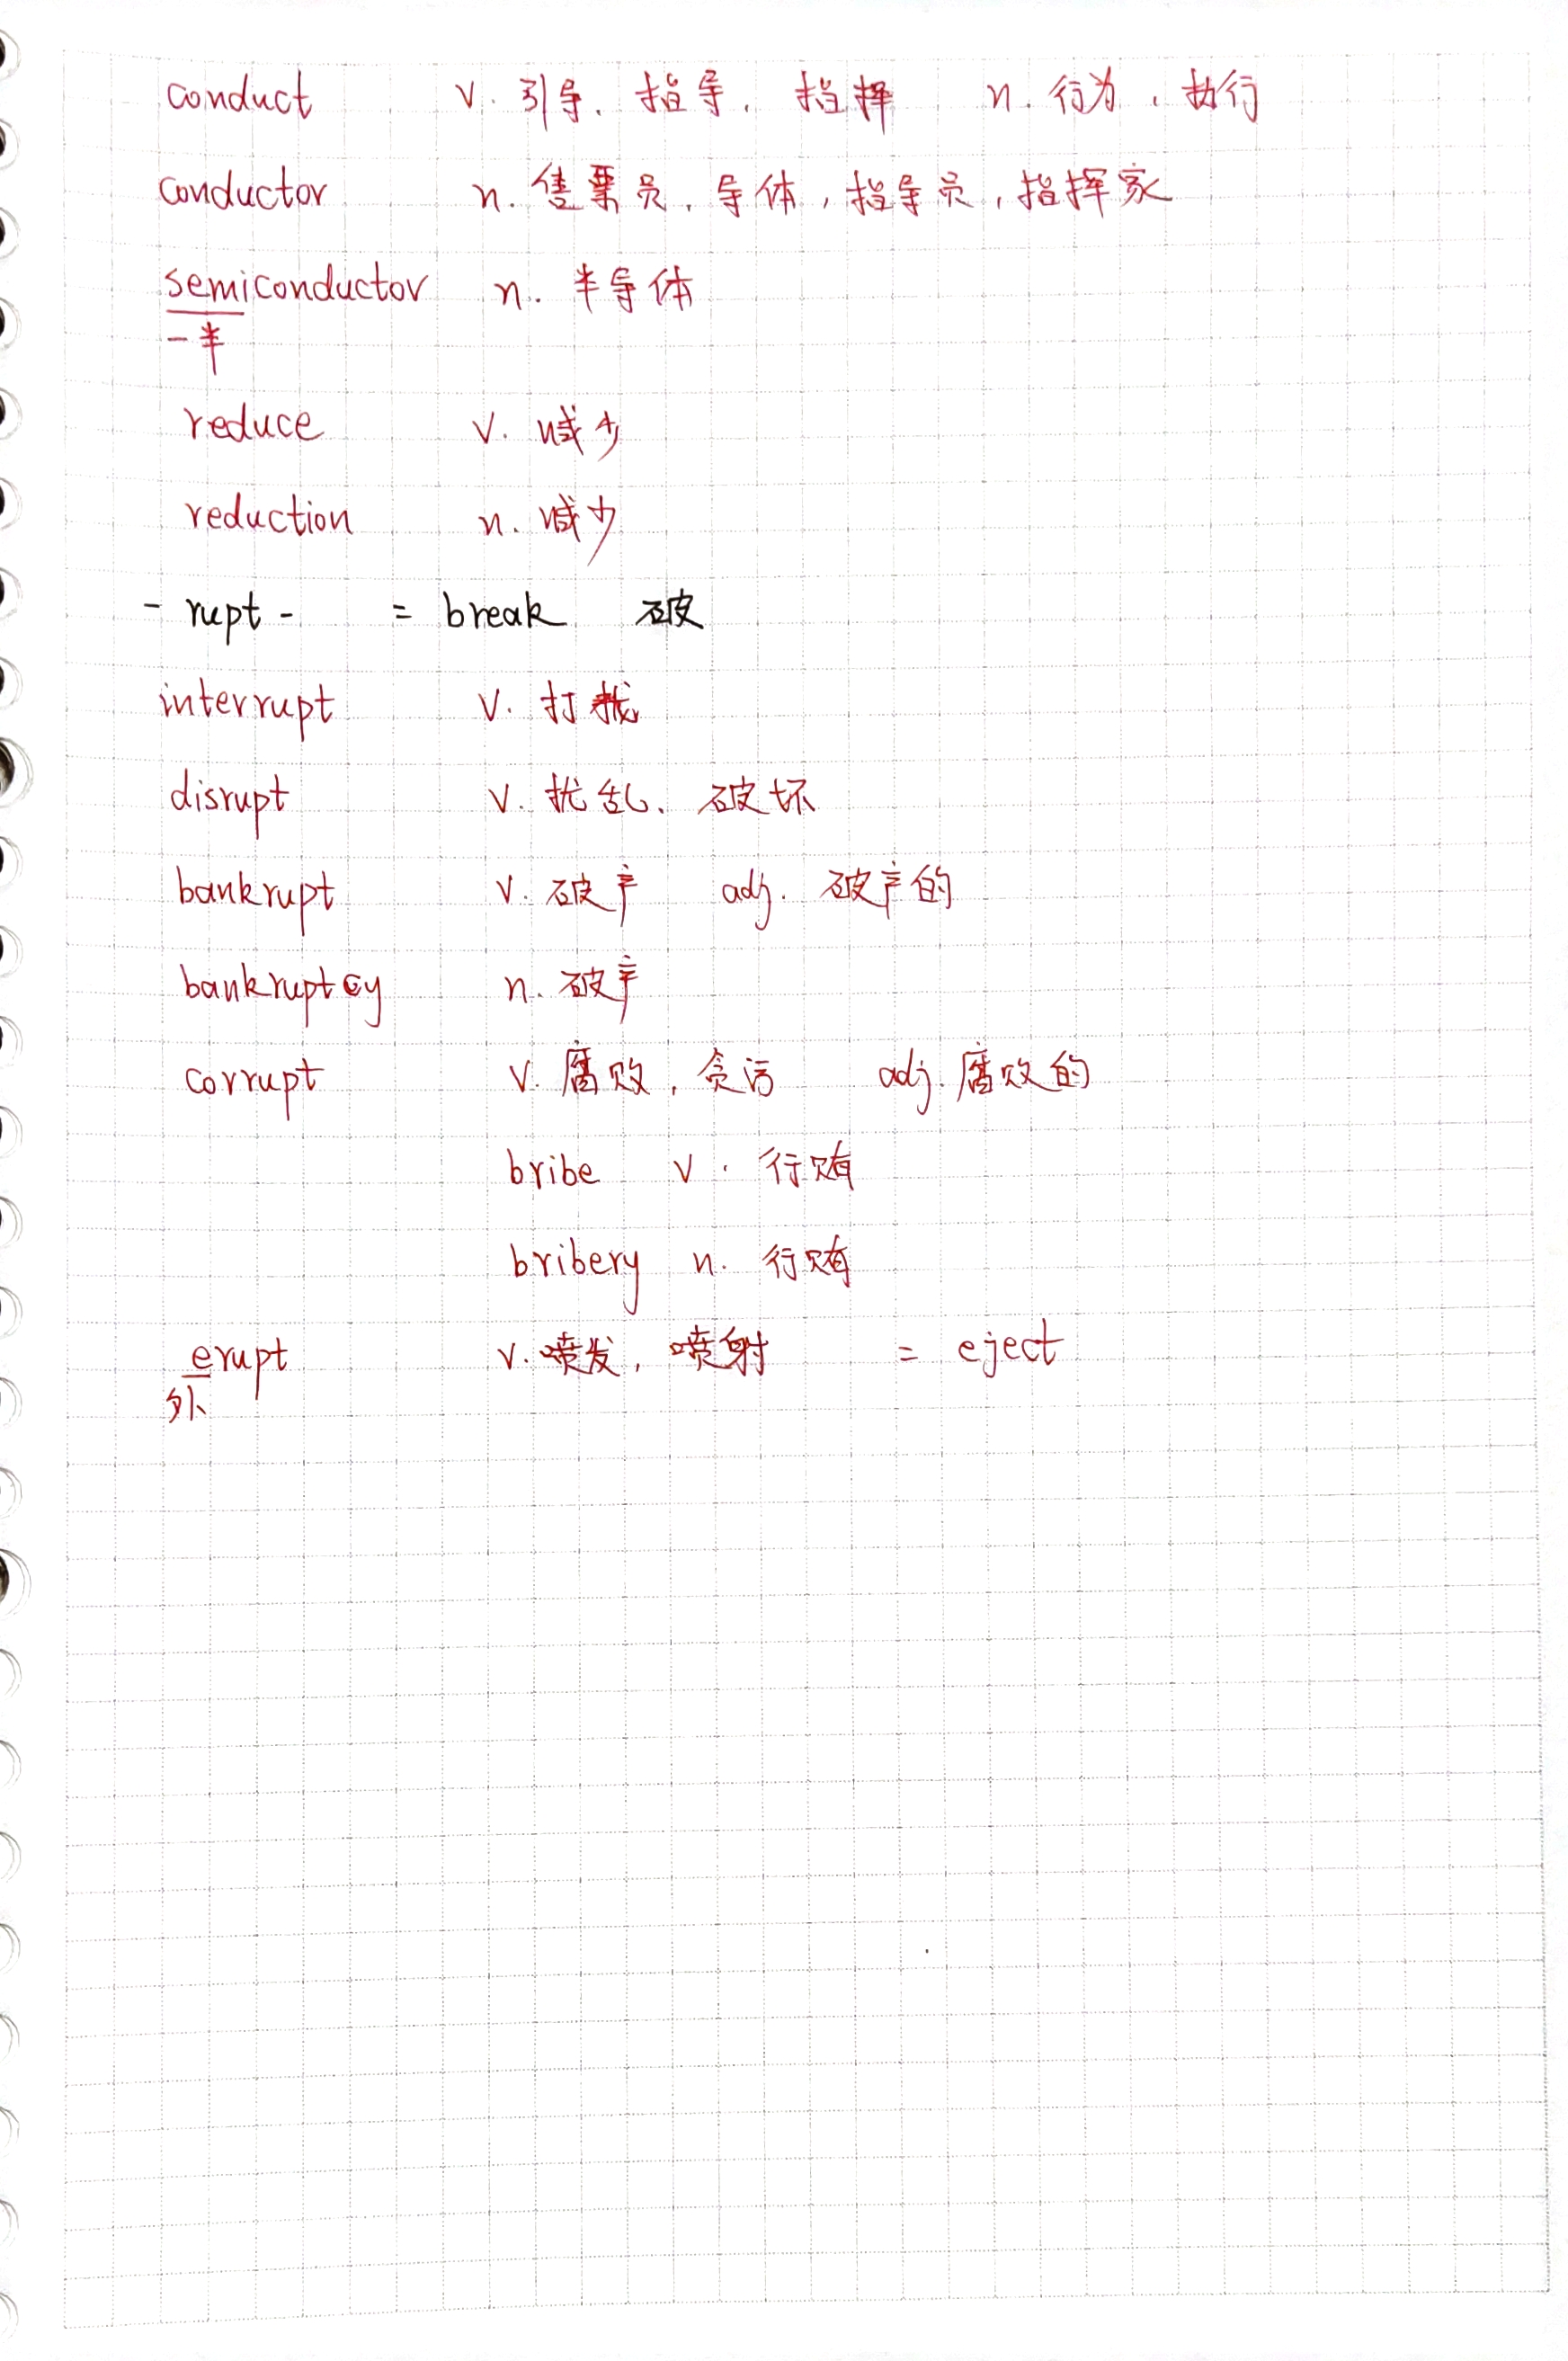 conduct v. 引导、指导、指挥 n. 行为、执行
conductor n. 售票员、导体，指导员，指挥家
semiconductor n. 半导体
一半
reduce v. 减少
reduction n. 减少
- rupt - = break 破
interrupt v. 打扰
disrupt v. 扰乱、破坏
bankrupt v. 破产 adj. 破产的
bankruptcy n. 破产
corrupt v. 腐败，贪污 adj. 腐败的
bribe v. 行贿
bribery n. 行贿
erupt v. 喷发，喷射 = eject
外